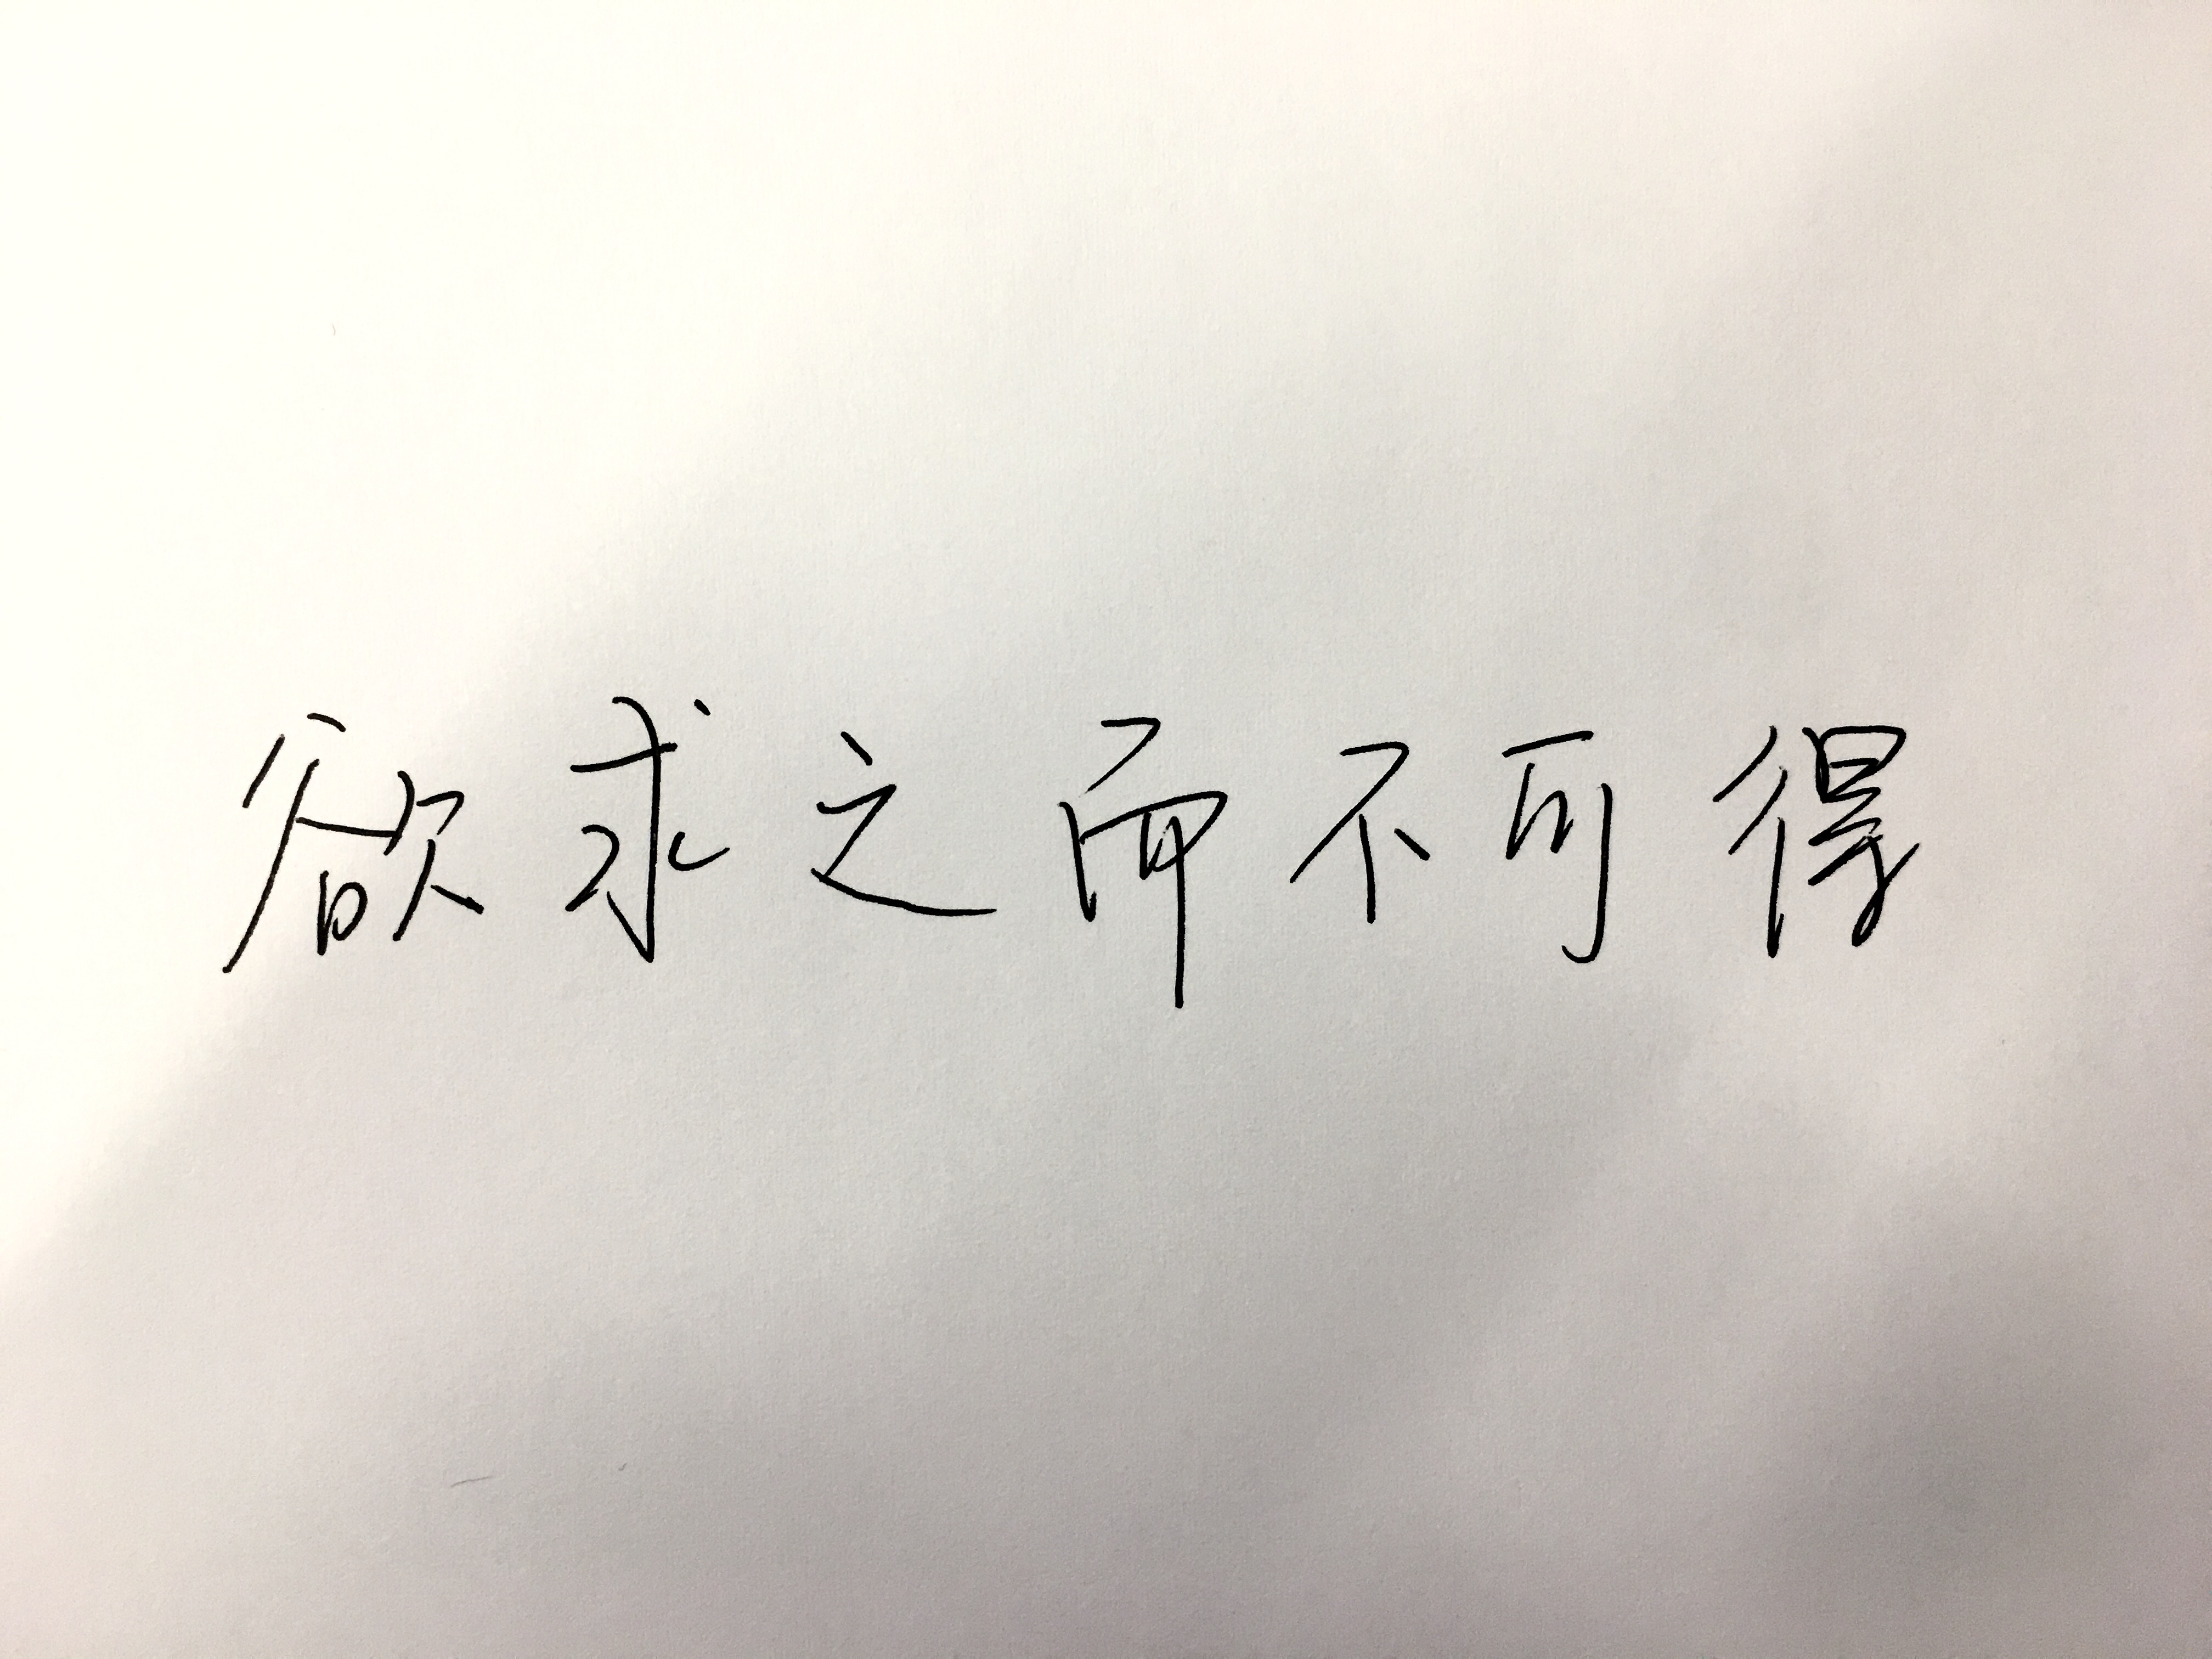 欲求之而不可得